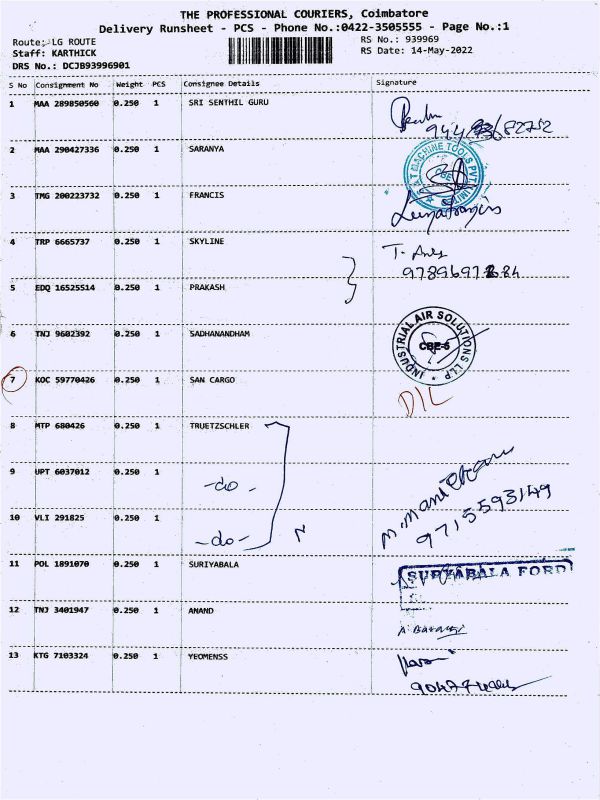 THE PROFESSIONAL COURIERS, Coimbatore
Delivery Runsheet - PCS - Phone No.:0422-3505555 - Page No.:1
Route: LG ROUTE
RS No.: 939969
Staff: KARTHICK
RS Date: 14-May-2022
DRS No.: DCJB93996901
S No Consignment No Weight PCS Consignee Details Signature
1 MAA 289850560 0.250 1 SRI SENTHIL GURU
2 MAA 290427336 0.250 1 SARANYA
MACHINE TOOLS PVT LIMITED
3 TMG 200223732 0.250 1 FRANCIS
4 TRP 6665737 0.250 1 SKYLINE
5 EDQ 16525514 0.250 1 PRAKASH
6 TNJ 9602392 0.250 1 SADHANANDHAM
INDUSTRIAL AIR SOLUTIONS LLP
CBE-6
7 KOC 59770426 0.250 1 SAN CARGO
D/L
8 MTP 680426 0.250 1 TRUETZSCHLER
9 UPT 6037012 0.250 1 -do-
9715593149
10 VLI 291825 0.250 1 -do-
11 POL 1891070 0.250 1 SURIYABALA
SURYABALA FORD
12 TNJ 3401947 0.250 1 ANAND
13 KTG 7103324 0.250 1 YEOMENSS